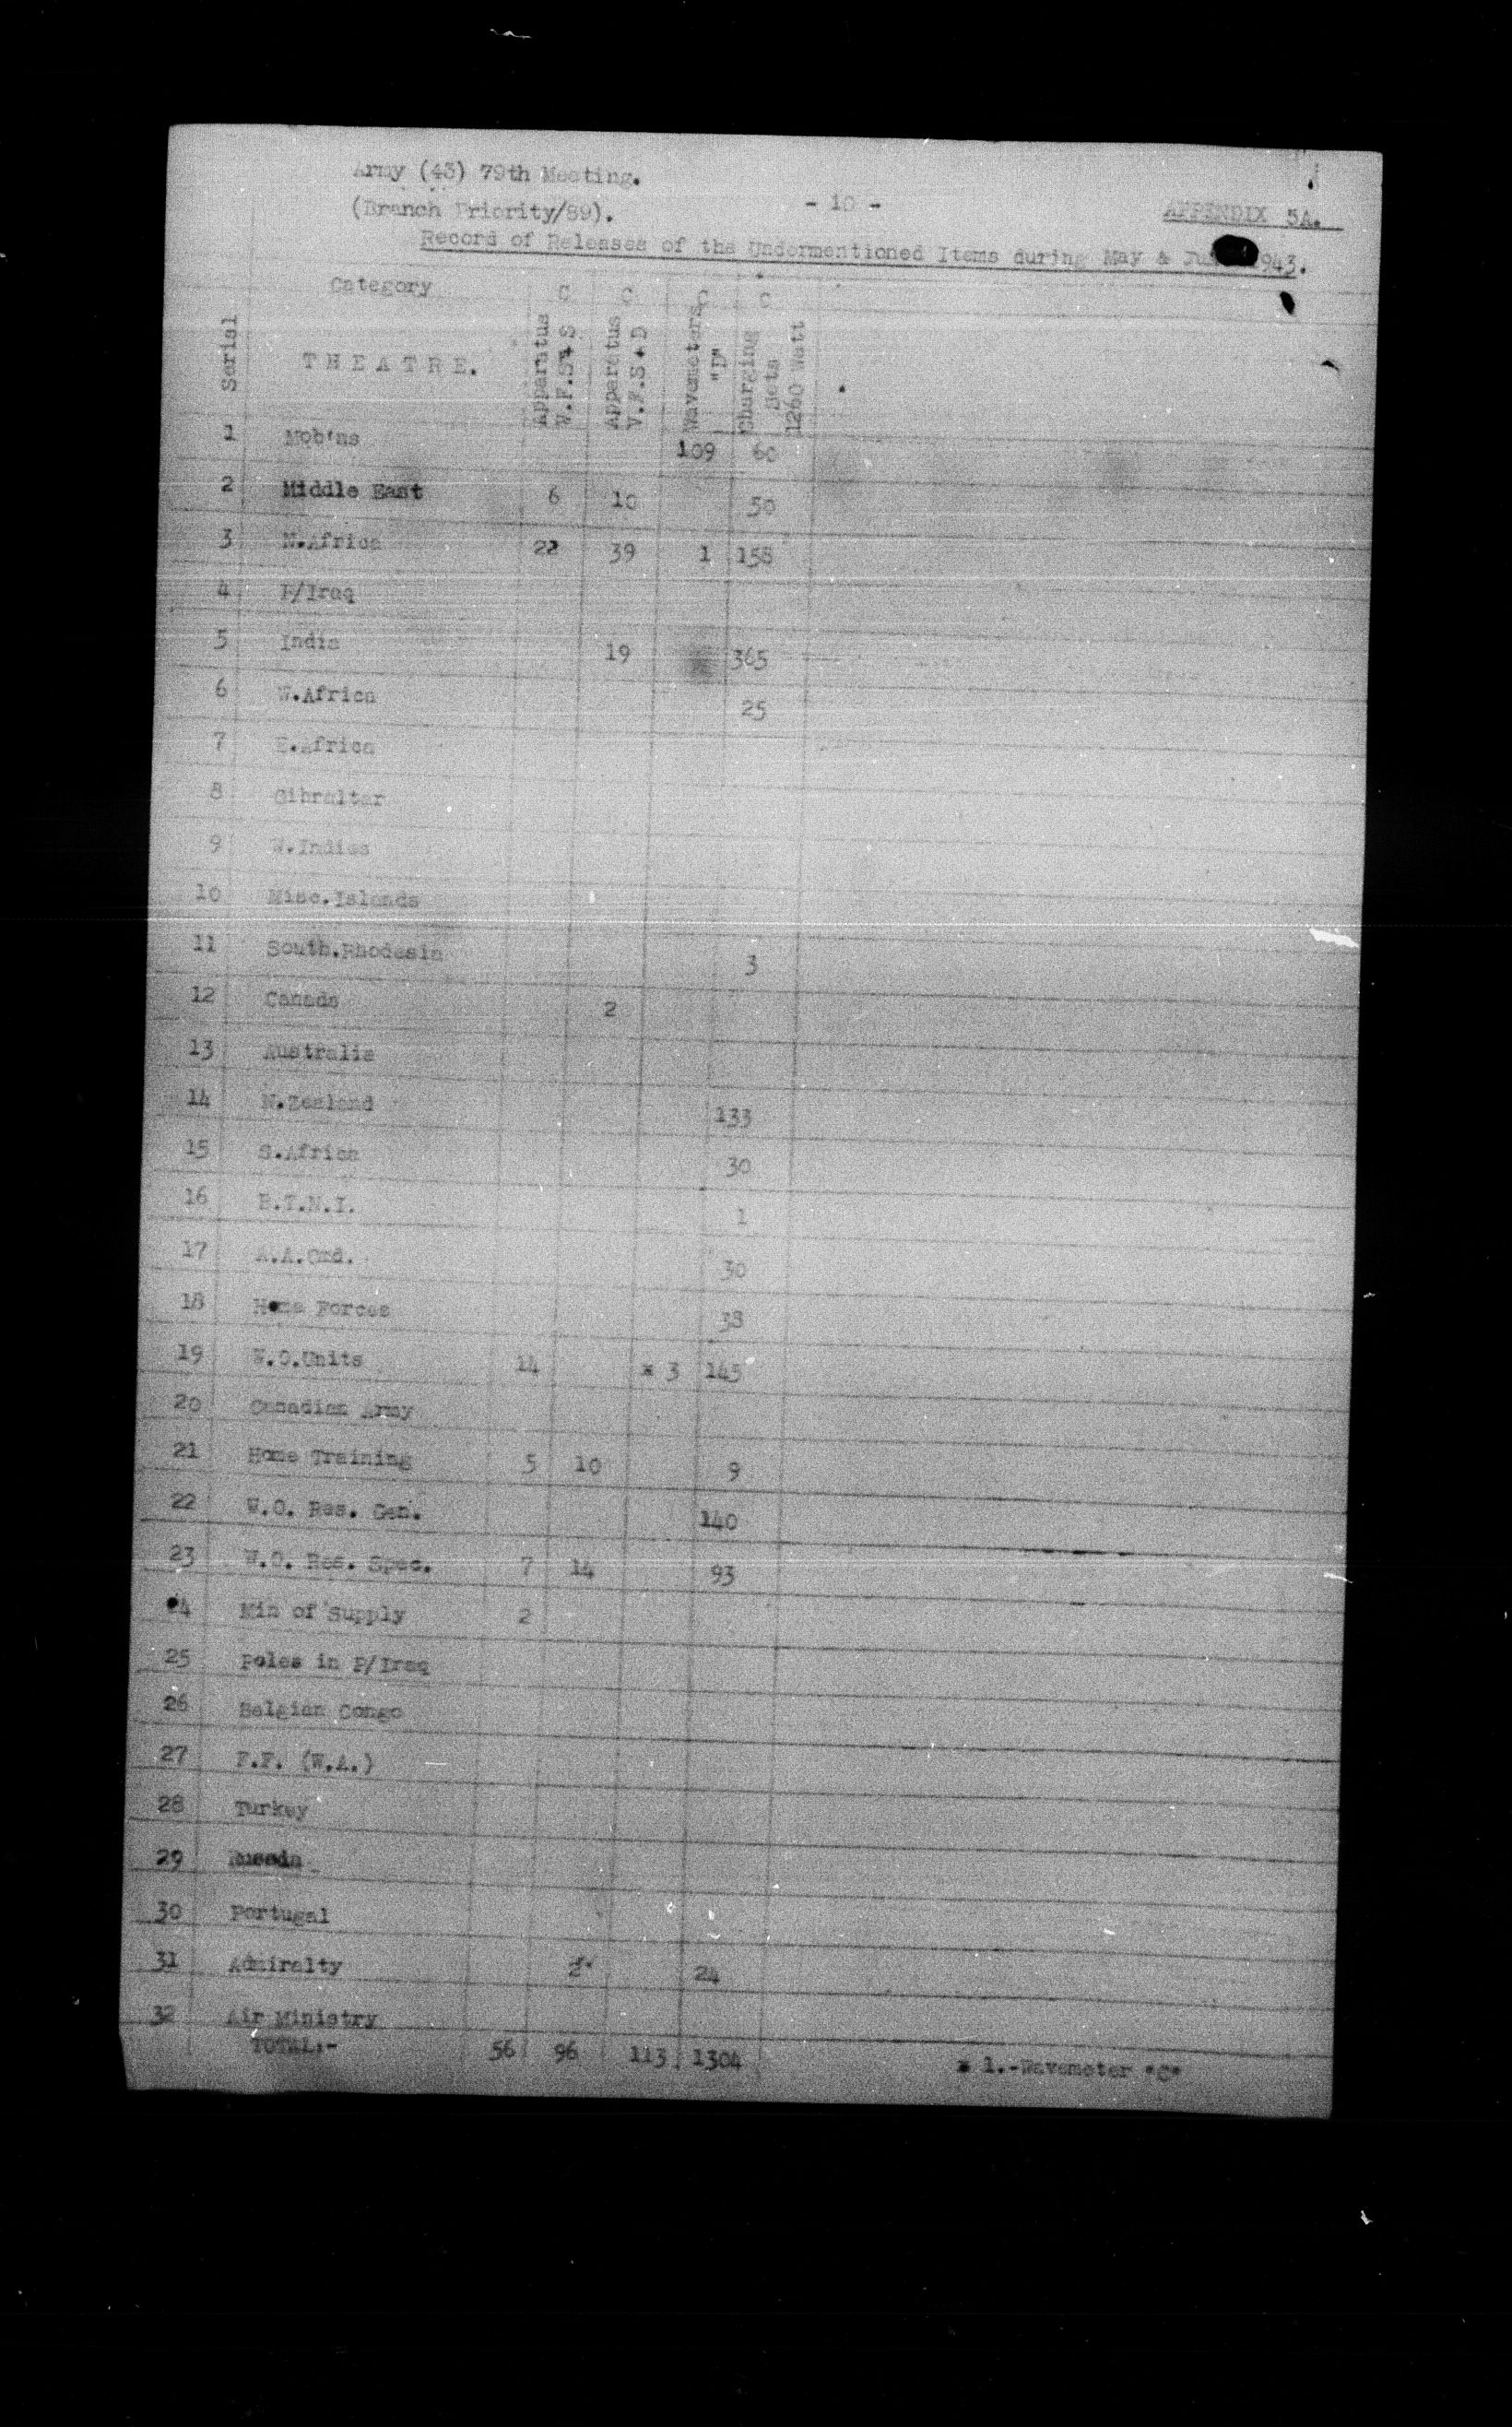 Army (43) 79th Meeting.
(Branch Priority/89).
- 10 -
APPENDIX 5A.
Record of Releases of the Undermentioned Items during May & 1943.
Category C C C C
Serial THEATRE. Apparatus W.F.S + S Apparatus V.F.S + D Wavemeters "D" Charging Sets 1260 Watt
1 Mob'ns 109 60
2 Middle East 6 10 50
3 N.Africa 22 39 1 158
4 P/Iraq
5 India 19 365
6 W.Africa 25
7 E.Africa
8 Gibraltar
9 W.Indies
10 Misc.Islands
11 South.Rhodesia 3
12 Canada 2
13 Australia
14 N.Zealand 133
15 S.Africa 30
16 B.T.N.I. 1
17 A.A.Cmd. 30
18 Home Forces 38
19 W.O.Units 14 x 3 145
20 Canadian Army
21 Home Training 5 10 9
22 W.O. Res. Gen. 140
23 W.O. Res. Spec. 7 14 93
24 Min of Supply 2
25 Poles in P/Iraq
26 Belgian Congo
27 F.F. (W.A.)
28 Turkey
29 Russia
30 Portugal
31 Admiralty 2 24
32 Air Ministry
TOTAL:- 56 96 113 1304
x 1.-Wavemeter "C"